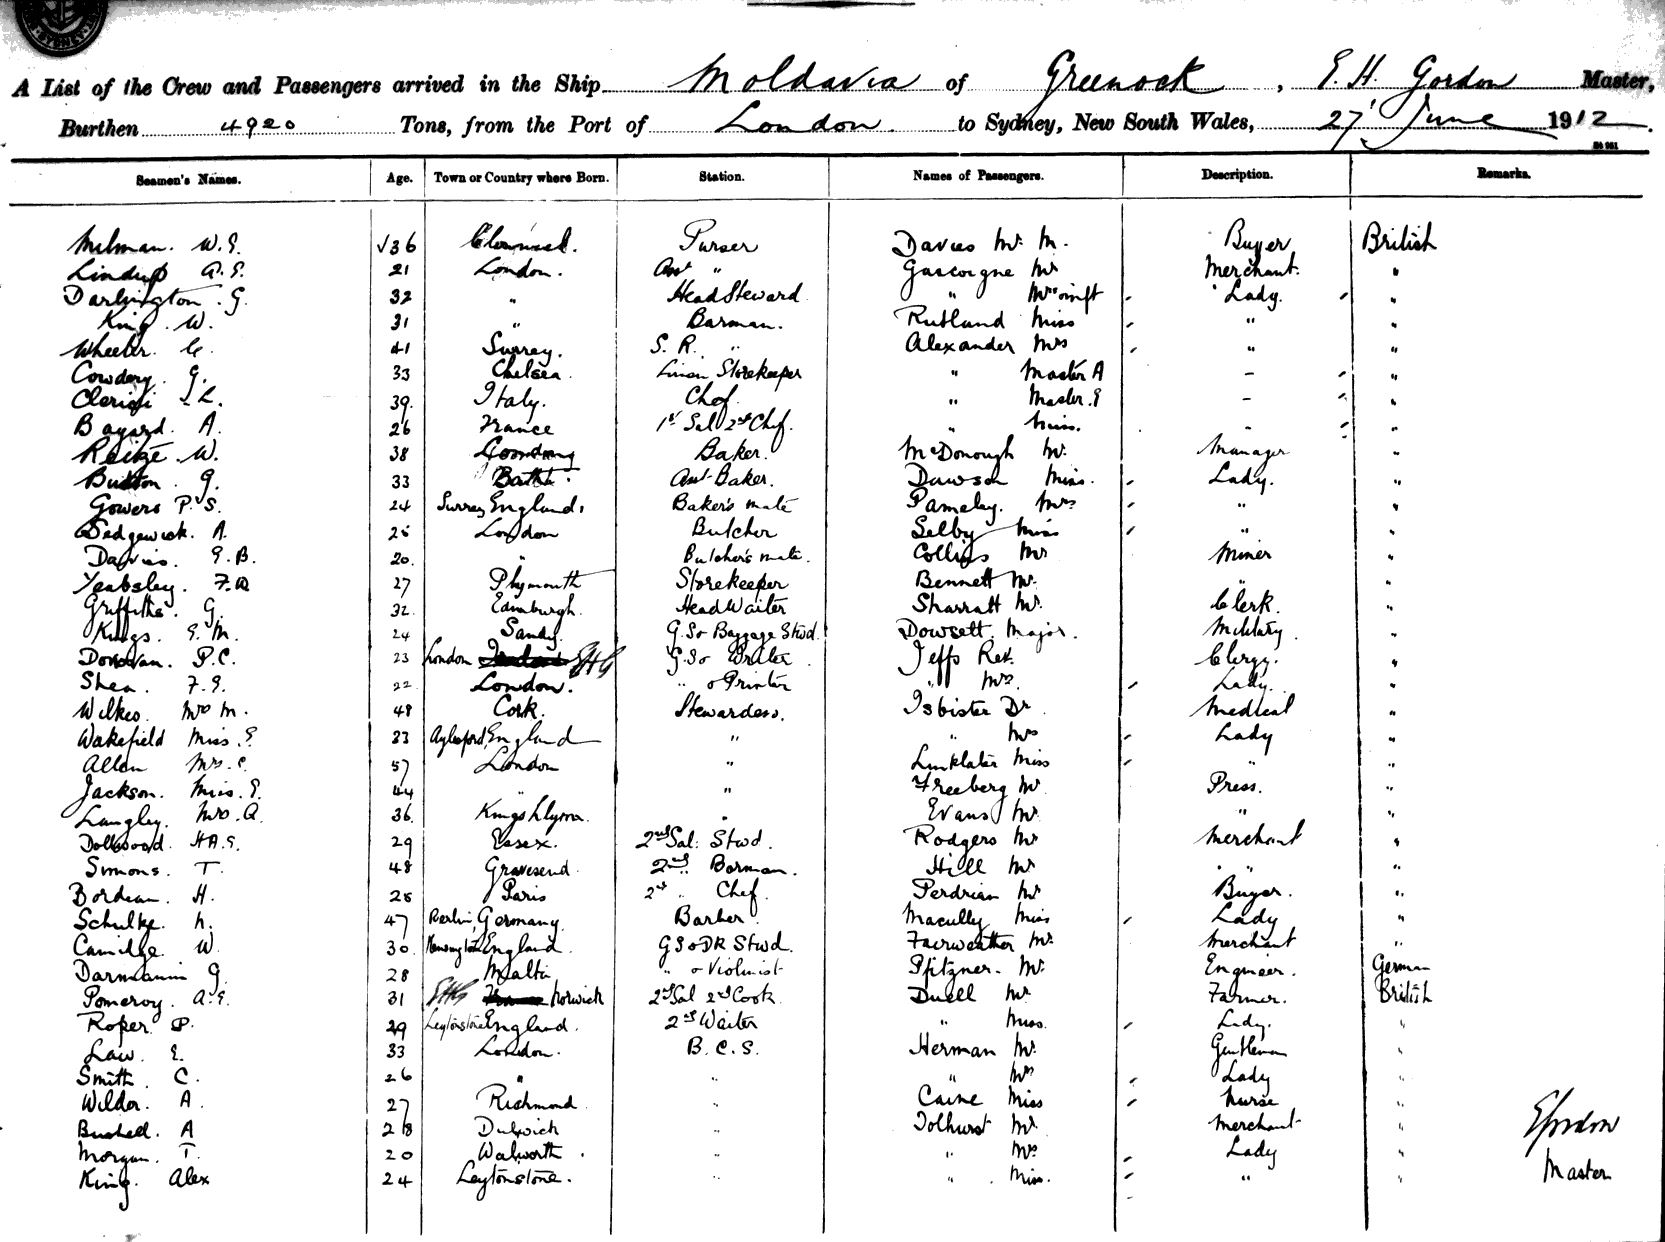 SYDNEY
A List of the Crew and Passengers arrived in the Ship Moldavia of Greenock, E. H. Gordon Master,
Burthen 4920 Tons, from the Port of London to Sydney, New South Wales, 27 June 1912
Seamen's Names. Age. Town or Country where Born. Station. Names of Passengers. Description. Remarks.
Milman. W.E. 36 Purser Davies Mr. M. Buyer British
Lindup A.E. 21 London. Asst " Gascoigne Mr Merchant. "
Darlington. G. 32 " Head Steward " Mrs & inft Lady. "
King. W. 31 " Barman. Rutland Miss " "
Wheeler. 41 Surrey. S. R. " Alexander Mrs " "
Cowdery. G. 33 Chelsea. Linen Storekeeper " Master A - "
Clerici. L. 39. Italy. Chef. " Master. E - "
Bayard. A. 26 France 1st Sal 2nd Chef. " Miss. - "
W. 38 Baker. McDonough Mr. Manager "
Buxton. G. 33 Bath. Asst Baker. Dawson Miss. Lady. "
Gowers P. S. 24 Surrey England. Baker's mate Pameley. Mrs " "
Sedgewick. A. 25 London Butcher Selby Miss " "
Davies. E.B. 20. " Butcher's mate. Collins Mr Miner "
Yeabsley. F. 27 Plymouth Storekeeper Bennett Mr. " "
Griffiths. G. 32. Edinburgh. Head Waiter Sharratt Mr. Clerk. "
Kings. E. M. 24 Sandy. G.S & Baggage Stwd. Dowsett. Major. Military. "
Donovan. P.C. 23 London EHG G.S & Writer Jeffs Rev. Clergy. "
Shea. F.E. 22 London. " & Printer " Mrs. Lady. "
Wilkes. Mrs M. 48 Cork. Stewardess. Isbister Dr Medical "
Wakefield Miss. E. 33 Aylesford, England " " Mrs Lady "
Allen Mrs. C. 57 London " Linklater Miss " "
Jackson. Miss. E. 44 " " Freeberg Mr. Press. "
Langley. Mrs. A. 36. Kings Lynn. " Evans Mr. " "
Dollwood. H.A.E. 29 Essex. 2nd Sal. Stwd. Rodgers Mr Merchant "
Simons. T. 48 Gravesend. 2nd " Barman. Hill Mr " "
Bordeau. H. 25 Paris 2nd " Chef. Perdriau Mr. Buyer. "
Schulke. 47 Berlin, Germany. Barber. Macully Miss Lady "
Camidge. W. 30. Kennington England. G S & DR Stwd. Fairweather Mr. Merchant "
Darmanin G. 28 Malta " & Violinist Pfitzner. Mr. Engineer. German
Pomeroy. A.E. 31 EHG Norwich 2nd Sal 2nd Cook. Duell Mr. Farmer. British
Roper. P. 29 Leytonstone England. 2nd Waiter " Miss. Lady. "
Law. E. 33 London. B. C. S. Herman Mr. Gentleman "
Smith. C. 26 " " " Mrs Lady "
Wilder. A. 27 Richmond. " Caine Miss Nurse "
Bushell. A 28 Dulwich " Tolhurst Mr. Merchant "
Morgan. T. 20 Walworth. " " Mrs Lady "
King. Alex 24 Leytonstone. " " Miss. " "
EGordon
Master